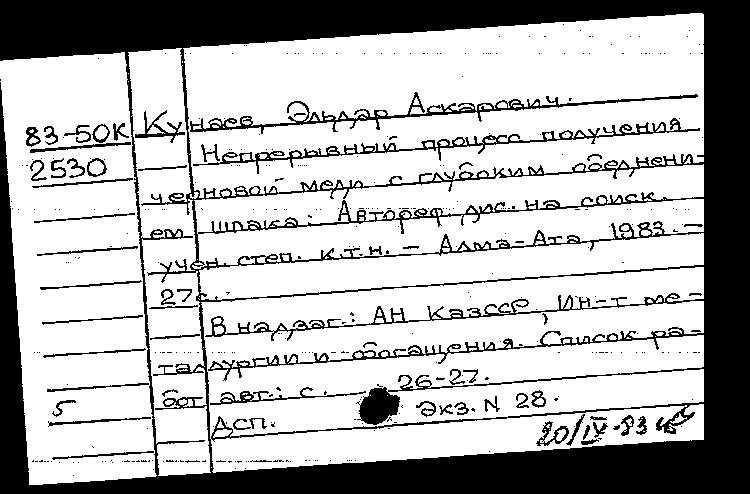 83-50К Кунаев, Эльдар Аскарович.
2530 Непрерывный процесс получения
черновой меди с глубоким обеднени-
ем шлака: Автореф. дис. на соиск.
учен. степ. к.т.н. - Алма-Ата, 1983. -
27с. -
В надзаг.: АН КазССР, Ин-т ме-
таллургии и обогащения. Список ра-
5 бот авт.: с. 26-27.
ДСП. Экз. N 28.
20/IV-83